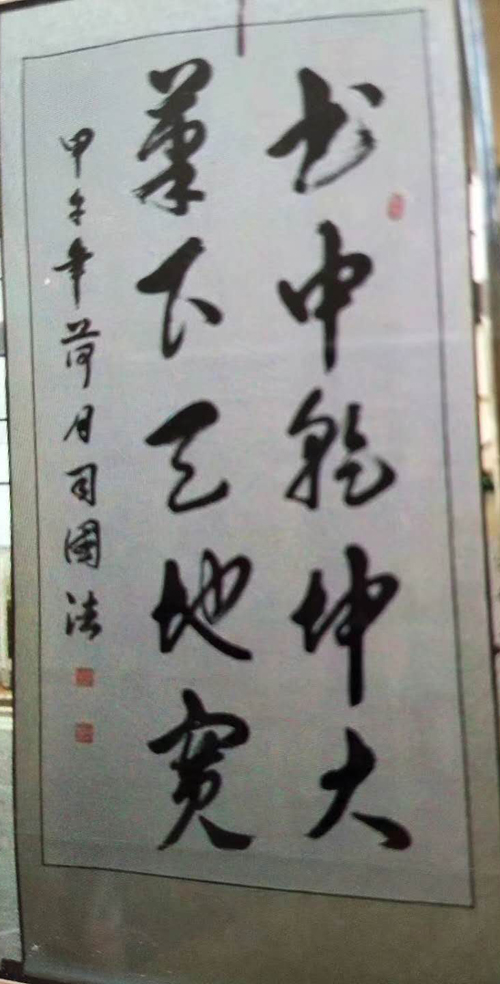 书中乾坤大
笔下天地宽
甲午年荷月司國法